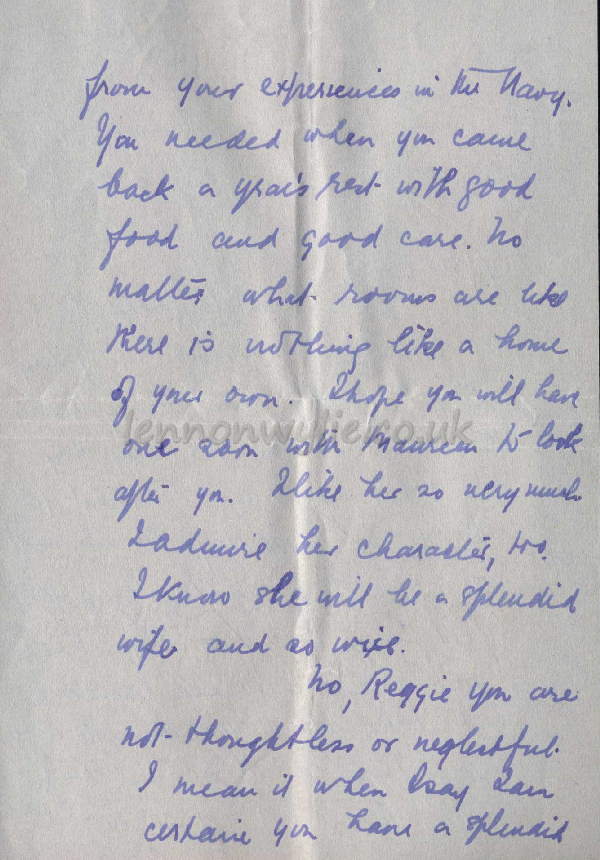 from your experiences in the Navy.
You needed when you came
back a year's rest with good
food and good care. No
matter what rooms are like
there is nothing like a home
of your own. I hope you will have
lennonwylie.co.uk
one soon with Maureen to look
after you. I like her so very much
I admire her character, too.
I know she will be a splendid
wife and so wise.
No, Reggie you are
not thoughtless or neglectful.
I mean it when I say I am
certain you have a splendid